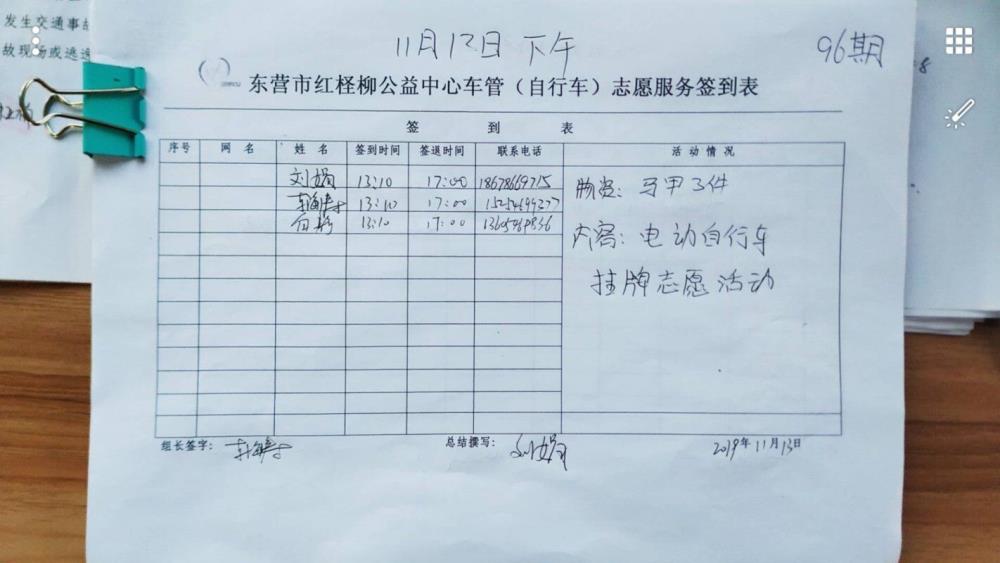 发生交通事故
故现场或逃逸
11月12日 下午
96期
东营市红柽柳公益中心车管（自行车）志愿服务签到表
签 到 表
序号 网 名 姓 名 签到时间 签退时间 联系电话 活 动 情 况
刘娟 13:10 17:00 18678669715
13:10 17:00
13:10 17:00
物资: 马甲3件
内容: 电动自行车
挂牌志愿活动
组长签字: 总结撰写: 刘娟 2019年11月13日